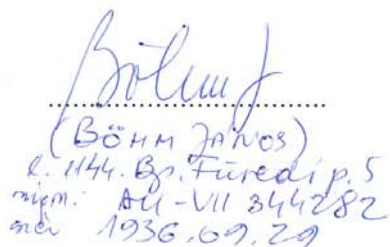 Böhm J
(BÖHM JÁNOS)
l. 1144. Bp. Füredi p. 5
szigm: AU-VII 344282
szül 1936.09.29